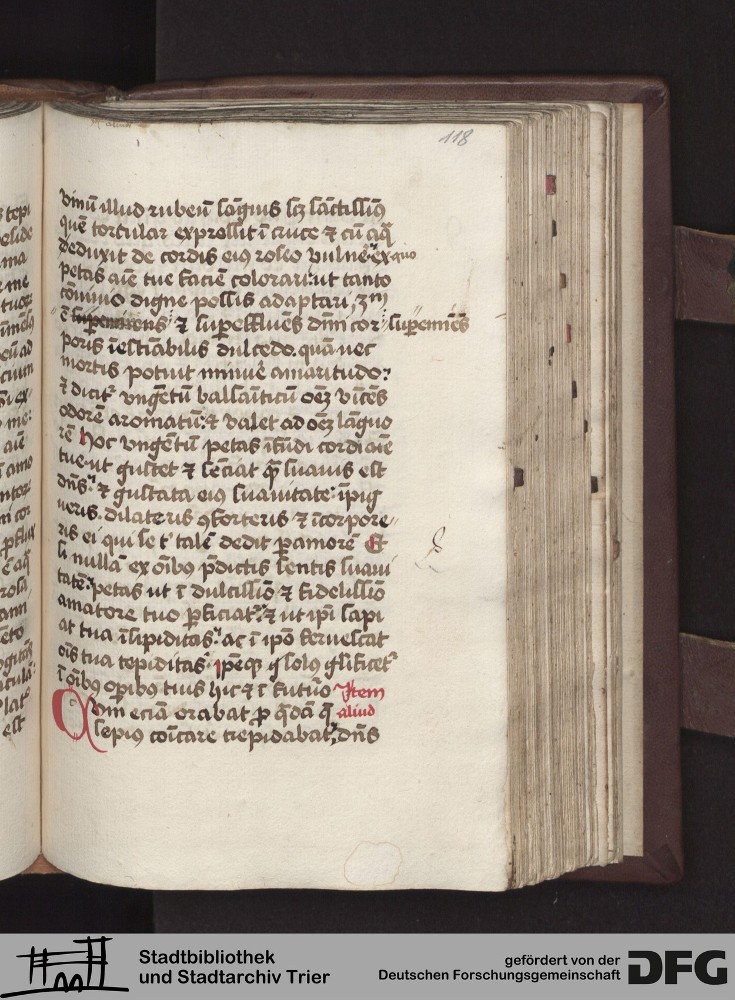 118
vinū illud rubeū sāguis scꝫ sāctissimꝰ
quē torcular expressit ī cruce ⁊ cū aq̄
deduxit de cordis eiꝰ roseo vulnē ex quo
petas aīe tue faciē colorari ut tanto
cōuiuio digne possis adaptari ꝫm
ē ⁊ suꝑeffluēs dnī cor suꝑemīēs
poris īestīabilis dulcedo quā nec
mortis potuit minuē amaritudo
⁊ dicit vngētū balsāīticū oēꝫ vīcēs
odorē aromatū ⁊ valet ad oēꝫ lāguo
rē hoc vngētū petas īfūdi cordi aīe
tue ut gustet ⁊ sēciat ꝙ̄ suauis est
dn̄s ⁊ gustata eiꝰ suauitate īpig
ueris dilateris ꝯforteris ⁊ īcorpore
ris ei qui se t' talē dedit p amorē Et
si nullā ex oībꝰ p̄dictis sentis suaui
tatē petas ut ī dulcissīo ⁊ fidelissīo
amatore tuo ꝑficiat ⁊ ut ipī sapi
at tua īsipiditas ac ī ipō feruescat
oīs tua tepiditas ipēqꝫ q̄ solꝰ glīficet
ī oībꝰ oꝑibꝰ tuis hic ⁊ ī futuō Item
Qum eciā orabat ꝓ q̄dā q̄ aliud
sepiꝰ cōīcare trepidabat dn̄s
Stadtbibliothek
und Stadtarchiv Trier
gefördert von der
Deutschen Forschungsgemeinschaft
DFG